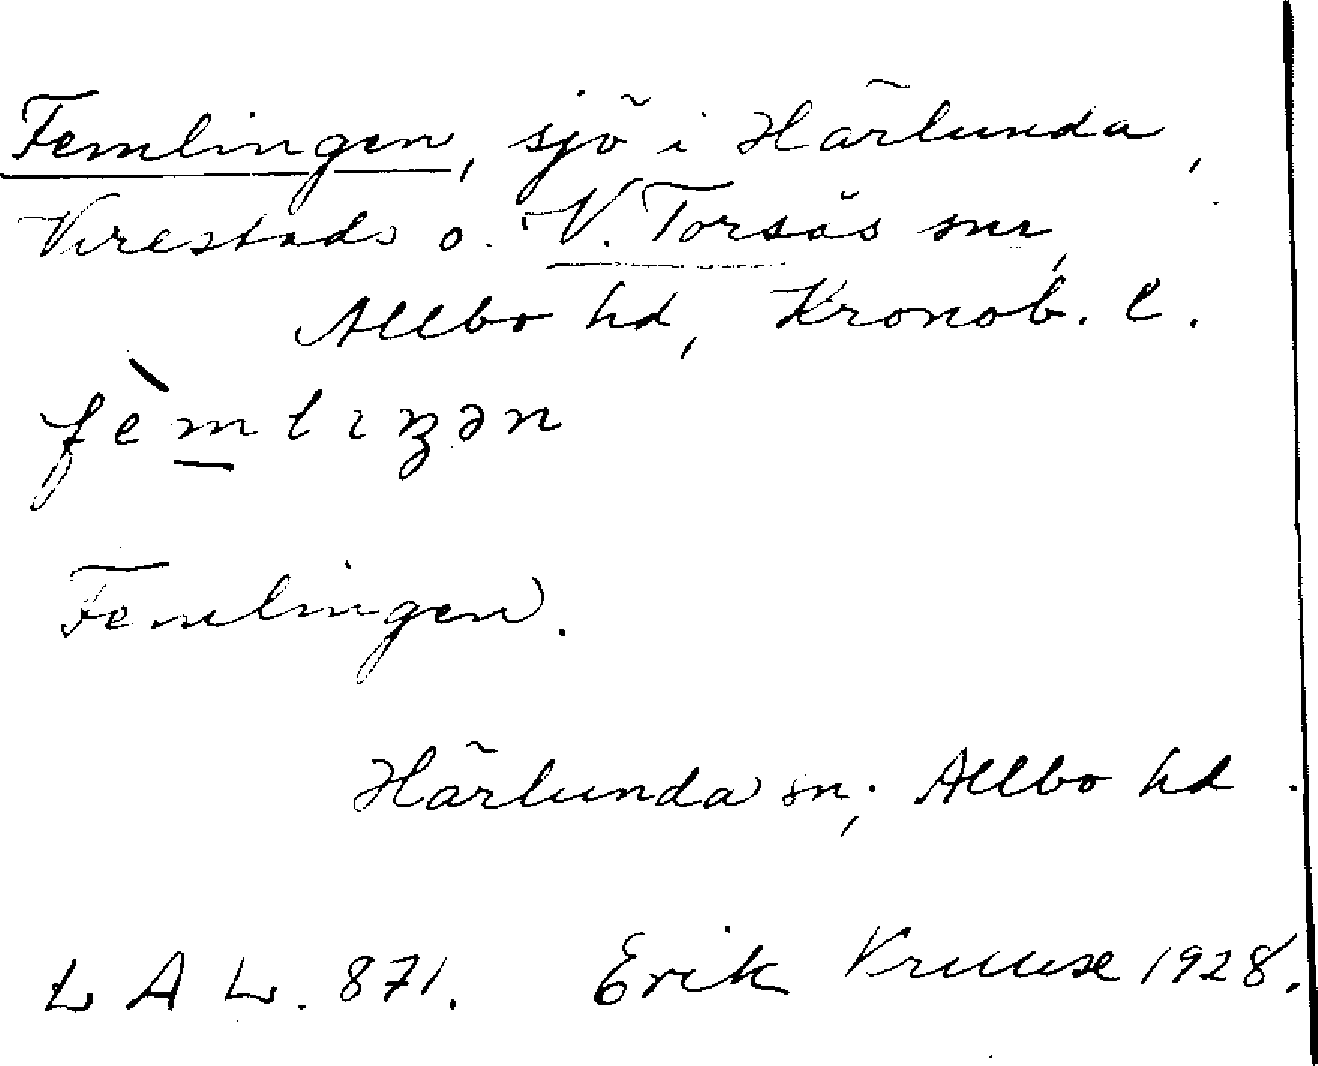 Femlingen, sjö i Härlunda,
Virestads o. V. Torsås snr,
Allbo hd, Kronob. l.
fèmlıŋən
Femlingen.
Härlunda sn; Allbo hd.
L A L. 871. Erik Kruuse 1928.